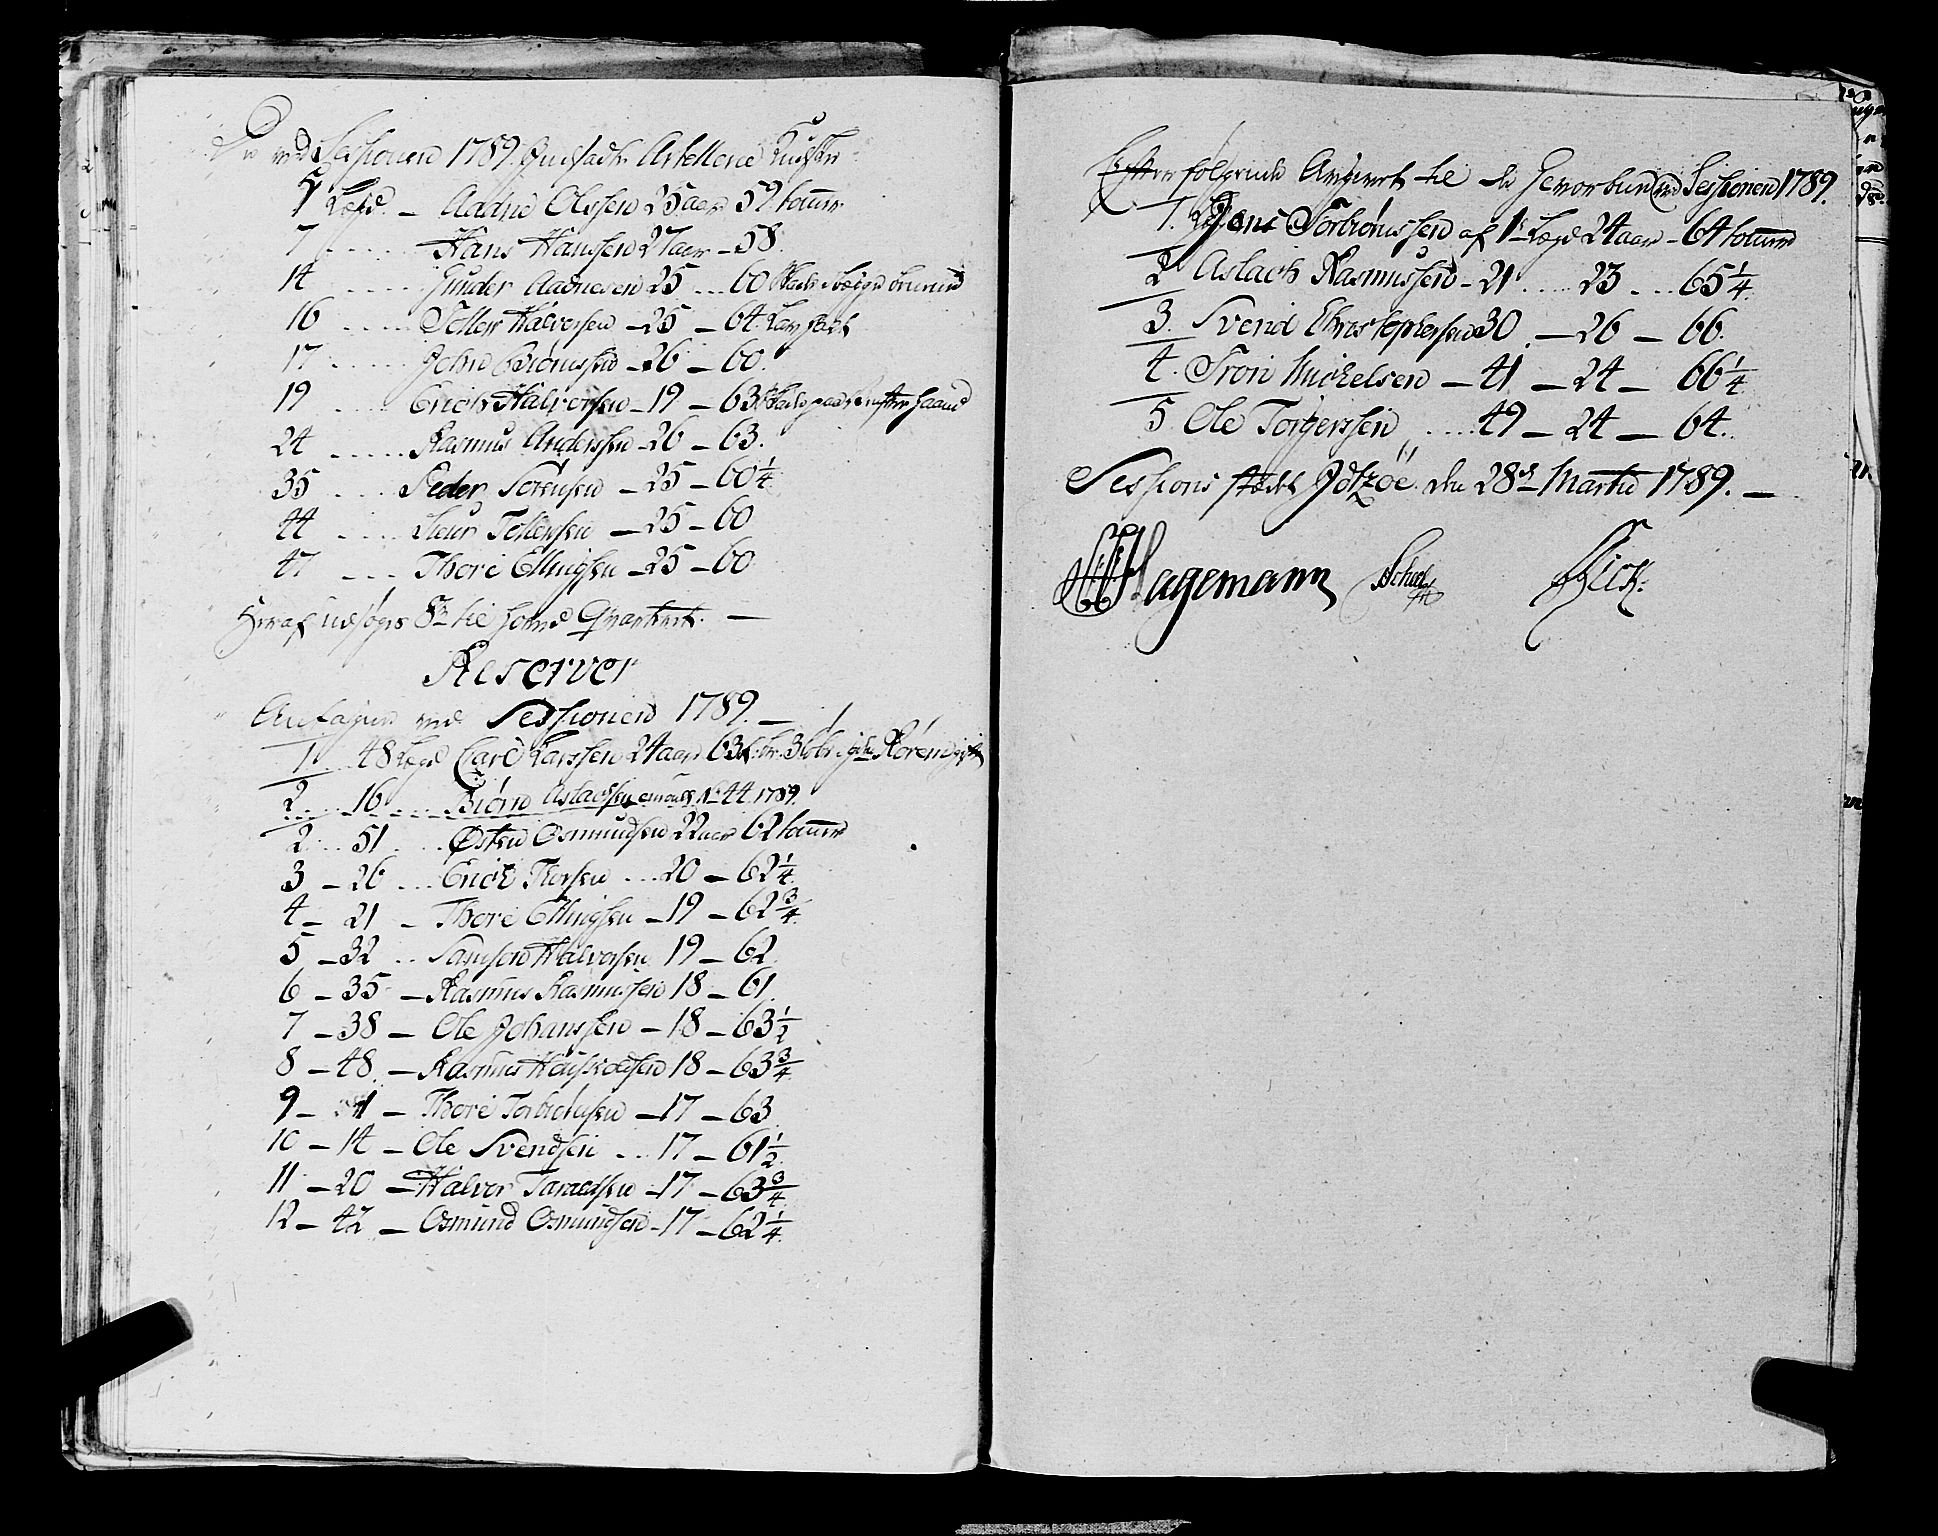 De ved Sessionen 1789 Artellerie Kudske
5 Lægd. - Aadne Olssen 25 aar 59 tomer
7 ..... Hans Hanssen 27 aar - 58.
14 ..... Gunder Aadnesen 25 ... 60
16 ..... Tollew Halvorsen - 25 - 64.
17 ..... John Biörnssen - 26 - 60.
19 .... Erich Halvorsen - 19 - 63
24 ..... Rasmus Anderssen - 26 - 63.
35 .... Peder Sörensen - 25 - 60 1/4
44 .... Siur Tollefsen - 25 - 60
47 ... Thore Ellingsen - 25 - 60
Heraf udsøges
Reserver
Antagen ved Sessionen 1789. -
1. 48 Lægd Carl Larssen 24 aar 63
2 .... 16 .... Biörn Aslachsen No 44. 1789.
2 ... 51 .... Östen Osmundsen 22 aar 62 tomer
3 - 26 ... Erich Thorsen ... 20 - 62 1/4
4 - 21 - Thore Ellingsen - 19 - 62 3/4.
5 - 32 .. Samson Halvorsen 19 - 62.
6 - 35 - Rasmus Rasmussen 18 - 61.
7 - 38 - Ole Johanssen - 18 - 63 1/2
8 - 48. - Rasmus 18 - 63 3/4
9 - 1 - Thore Torbiörnsen - 17 - 63
10 - 14 - Ole Svendsen ... 17 - 61 1/2.
11 - 20 - Halvor Taraldsen - 17 - 63 3/4
12 - 42 - Osmund Osmundsen - 17 - 62 1/4.
Efterfölgende til de Geworbene ved Sessionen 1789.
1. Jens Torbiörnssen af 1te Lægd 24 aar - 64 tomer
2 Aslach Rasmussen - 21 .... 23 ... 65 1/4.
3. Svend Christophersen 30. - 26 - 66.
4. Tron Michelsen - 41 - 24 - 66 1/4
5 Ole Torgerssen ..... 49 - 24 - 64.
Sessions stædet den 28de Martii 1789. -
Hagemann